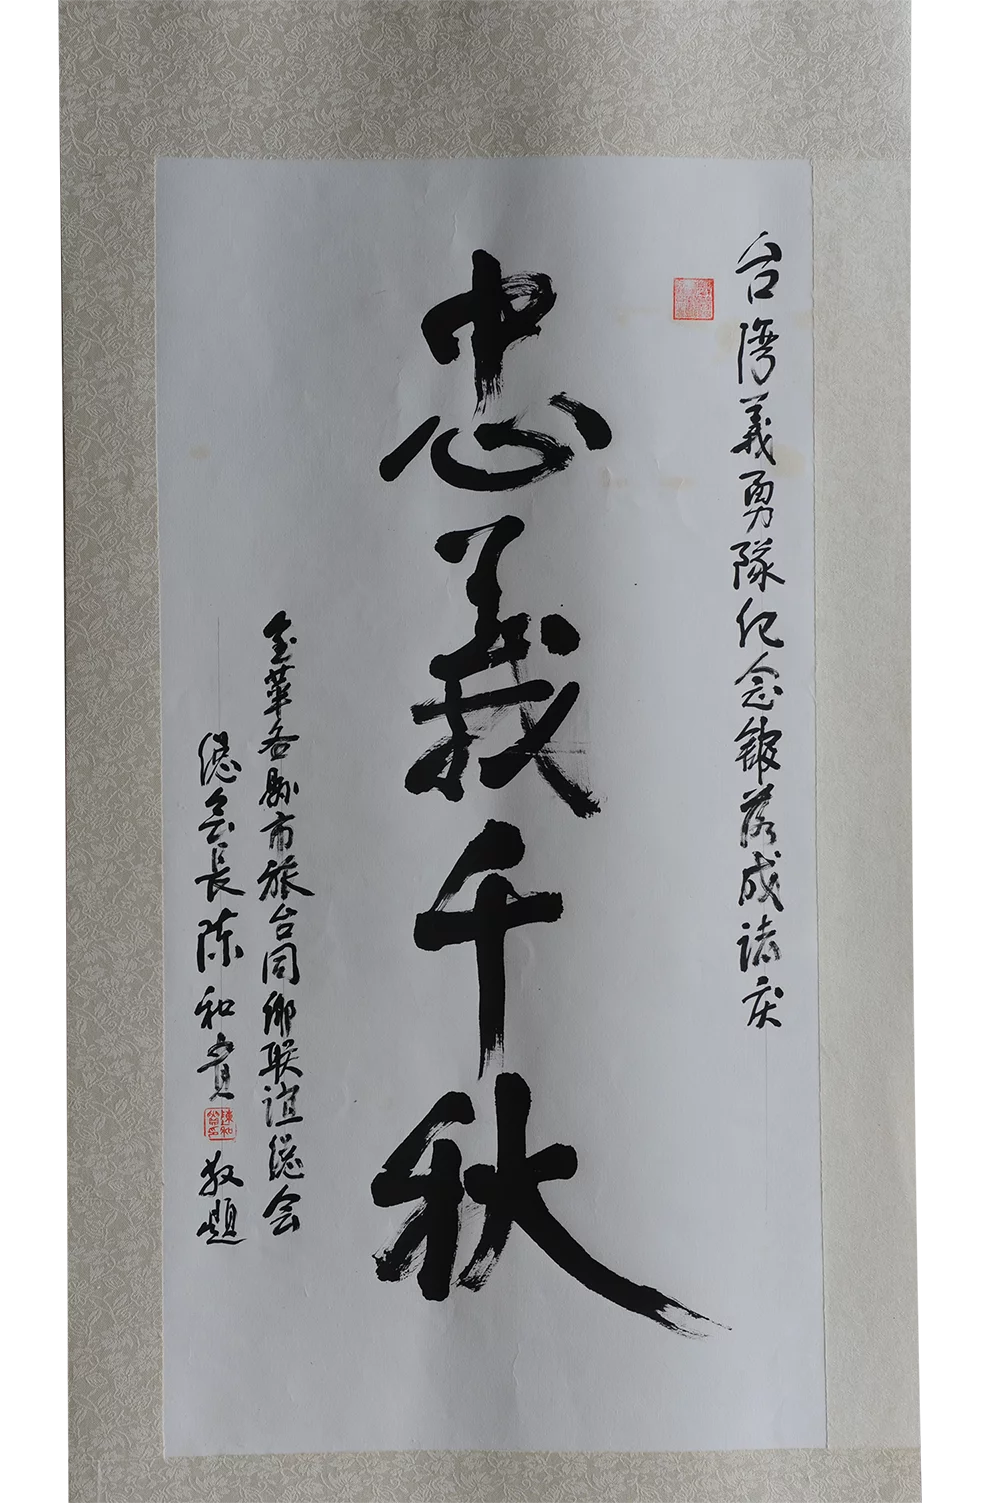 台灣義勇隊纪念館落成誌庆
忠義千秋
金華各縣市旅台同鄉联誼總会
總会長陈和貴
敬題